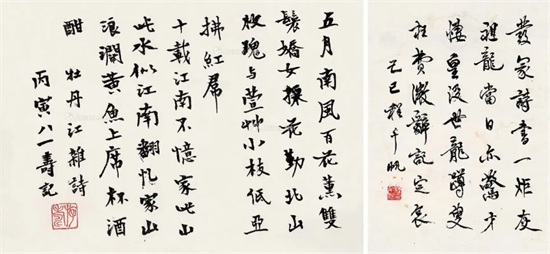 五月南風百花薰雙
鬟嬌女採花勤北山
玫瑰与萱艸小枝低亞
拂紅帬
十載江南不憶家此山
此水似江南翻忆家山
浪濶黄魚上席杯酒
酣 牡丹江雜詩
丙寅八一壽記
發冢詩書一炬灰
祖龍當日亦驚才
悽皇後世龍蹲叟
枉費微辭說定哀
己巳程千帆